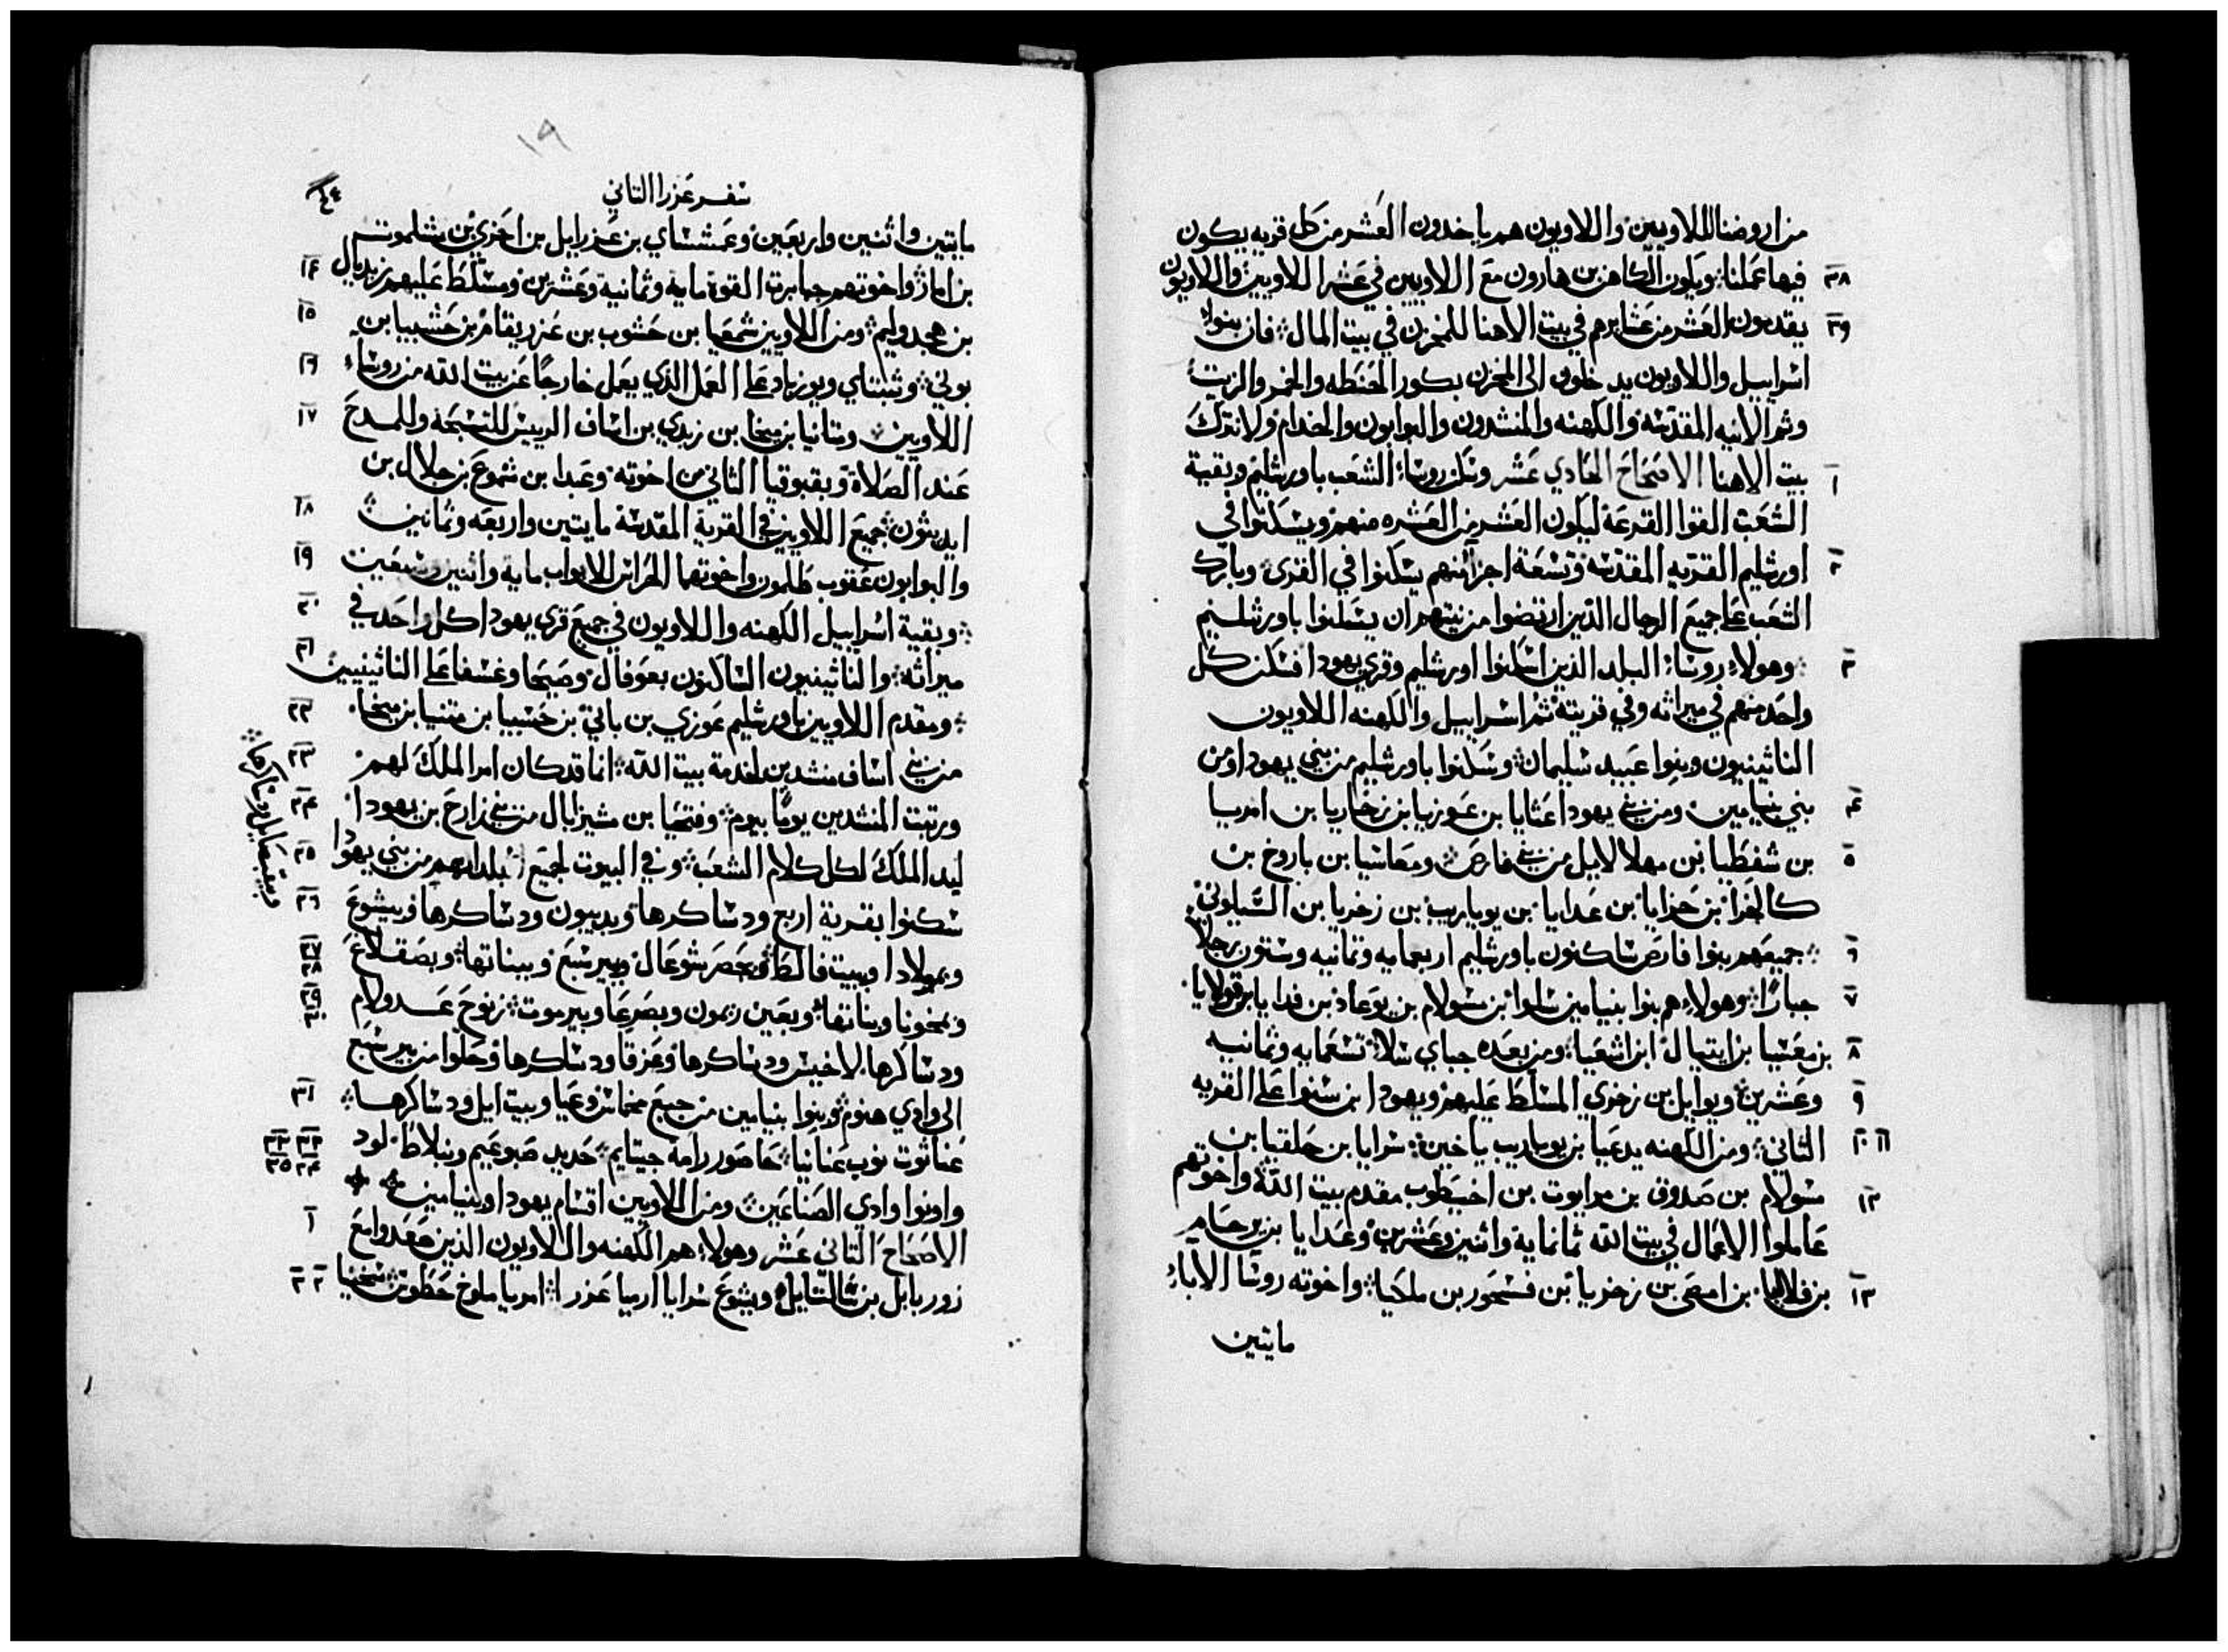 من اروضنا للاويين واللاويون هم ياخدون العشر من كل قريه يكون
٣٨ فيها عملنا ويكون الكاهن بن هارون مع اللاويين في عشر اللاويين واللاويون
٣٩ يقدمون العشر من عشايرهم في بيت الاهنا للمخزن في بيت المال فان بنوا
اسراييل واللاويون يدخلون الى المخزن بكور الحنطه والخمر والزيت
وثم الانيه المقدسه والكهنه والمنشدون والبوابون والخدام ولا نترك
١ بيت الاهنا الاصحاح الحادي عشر وسكن روسا الشعب باورشليم وبقية
الشعب القوا القرعة ليكون العشر من العشره منهم ويسكنوا في
٢ اورشليم القريه المقدسه وتسعة اجزائهم يسكنوا في القرى وبارك
الشعب على جميع الرجال الذين ارتضوا من نيتهم ان يسكنوا باورشليم
٣ وهولاء روسا البلد الذين اسكنوا اورشليم وقرى يهودا فسكن كل
واحد منهم في ميراثه وفي قريته ثم اسراييل والكهنه اللاويون
الناثينيون وبنوا عبيد سليمان وسكنوا باورشليم من بني يهودا ومن
٤ بني بنيامين ومن بني يهودا عثايا بن عوزيا بن زخاريا بن امريا
٥ بن شفطيا بن مهلالاييل من بني فارص ومعاسيا بن باروخ بن
كالخزا بن حزايا بن عدايا بن يوياريب بن زخريا بن السيلوني
٦ جميعهم بنوا فارص ساكنون باورشليم اربعمايه وثمانيه وستون رجلا
٧ جبارًا وهولاء هم بنوا بنيامين سلوا بن مسولام بن يوعاد بن فدايا بن قولايا
٨ بن معسيا بن ايتيال ابن اشعيا ومن بعده جباي سلا تسعمايه وثمانيه
٩ وعشرين ويواييل بن زخري المسلط عليهم ويهودا ابن سنوا على القريه
١٠ ١١ الثاني ومن الكهنه يدعيا بن يوياريب ياخين سرايا بن حلقيا بن
١٢ مسولام بن صدوق بن مرايوت بن اخيطوب مقدم بيت الله واخوتهم
عاملوا الاعمال في بيت الله ثمانماية واثنين وعشرين وعدايا بن يرحام
١٣ بن فلاليا بن امصي بن زخريا بن فسحور بن ملكيا واخوته روسا الاباء
مايتين
سفر عزرا الثاني
مايتين واثنين واربعين وعمشساي بن عزراييل بن احزي بن مشلموتسم
١٤ بن اماز واخوتهم جبابرة القوة مايه وثمانية وعشرين ومسلط عليهم زبديال
١٥ بن هجدوليم ومن اللاويين شمعيا بن حشوب بن عزريقام بن حشبيا بن
١٦ بوني وثبتاي ويوزباد على العمل الذي يعمل خارجًا عن بيت الله من روساء
١٧ اللاويين ومتانيا بن ميخا بن زبدي بن اساف الرييس للتسبحة وللمدح
عند الصلاة وبقبوقيا الثاني من اخوته وعبدا بن شموع بن جلال بن
١٨ ايديثون جميع اللاويين في القرية المقدسة مايتين واربعه وثمانين
١٩ والبوابون عقوب طلمون واخوتهما الحراس للابواب مايه واثنين وسبعين
٢٠ وبقية اسراييل الكهنه واللاويون في جميع قرى يهودا كل واحد في
٢١ ميراثه والناثينيون الساكنون بعوفال وصيحا وغشفا على الناثينيين
٢٢ ومقدم اللاويين باورشليم عوزي بن باني بن حشبيا بن متنيا بن ميخا
٢٣ من بني اساف منشدين لخدمة بيت الله انما قد كان امر الملك لهم
٢٤ ورتبت المنشدين يومًا بيوم وفتحيا بن مشيزابال من بني زارح بن يهودا
٢٥ ليد الملك لكل كلام الشعب وفي البيوت لجميع بلدانهم من بني يهودا
٢٦ سكنوا بقرية اربع ودساكرها وبديبون ودساكرها وبيشوع
٢٧ ٢٨ وبمولادا وببيت فالط وبحصر شوعال وببير سبع وببناتها وبصقلاغ
٢٩ ٣٠ وبمخونا وبناتها وبعين ريمون وبصرعا وبيرموت زنوح عدولام
ودساكرها لاخيس ودساكرها وعزقا ودساكرها وحلوا من بير سبع
٣١ الى وادي هنوم وبنوا بنيامين من جبع مخماس وعيا وبيت ايل ودساكرها
٣٢ ٣٣ ٣٤ ٣٥ عناثوت نوب عنانيا حاصور رامة جيتايم حديد صبوعيم ونبلاط لود
واونوا وادي الصناعين ومن اللاويين اقسام يهودا وبنيامين
١ الاصحاح الثاني عشر وهولاء هم الكهنه واللاويون الذين صعدوا مع
٢ ٣ زوربابل بن سالتاييل ويشوع سرايا ارميا عزرا امريا ملوخ حطوش سخنيا
وبيقبصاييل ودساكرها